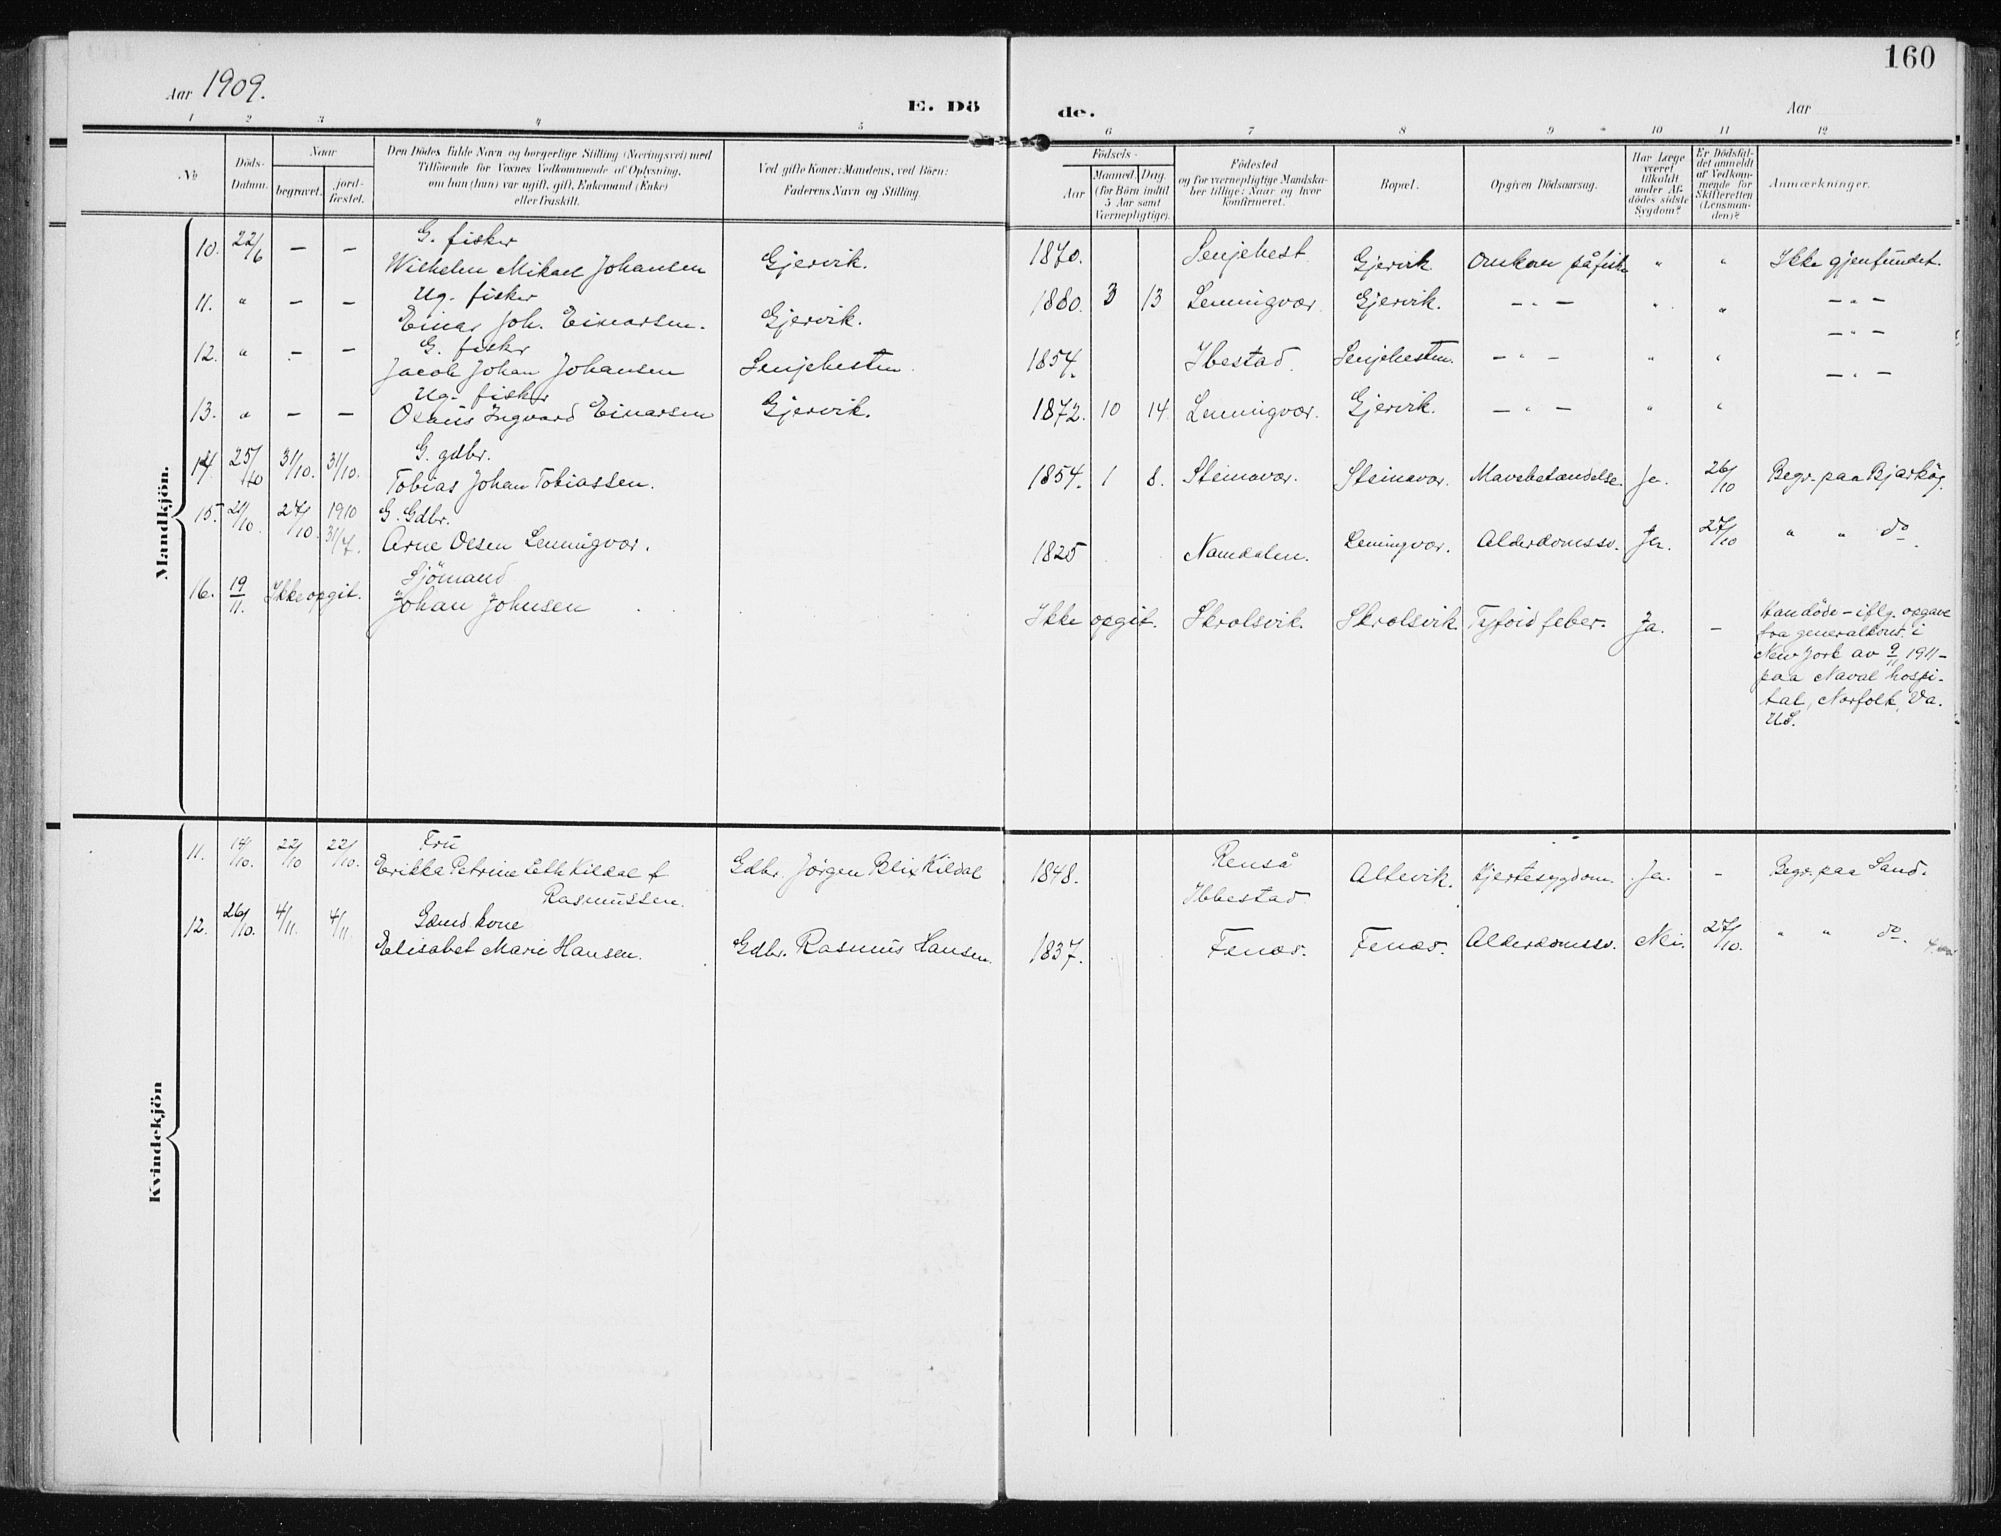 160
Aar 1909.
E. Dö de.
Aar
1 2 3 4 5 6 7 8 9 10 11 12
No
Döds-Datum.
Naar
begravet.
jord-fæstet.
Den Dödes fulde Navn og borgerlige Stilling (Næringsvei) med
Tilföiende for Voxnes Vedkommende af Oplysning,
om han (hun) var ugift, gift, Enkemand (Enke)
eller fraskilt.
Ved gifte Koner: Mandens, ved Börn:
Faderens Navn og Stilling.
Födsels-
Aar
Maaned. Dag.
(for Börn indtil
5 Aar samt
Værnepligtige).
Födested
og for værnepligtige Mandska-
ber tillige: Naar og hvor
konfirmeret.
Bopæl.
Opgiven Dödsaarsag.
Har Læge
været
tilkaldt
under Af-
dödes sidste
Sygdom?
Er Dödsfal-
det anmeldt
af Vedkom-
mende for
Skifteretten
(Lensman-
den)?
Anmærkninger.
Mandkjön.
10. 22/6 — — G. fisker
Wilhelm Mikael Johansen Gjervik. 1870. Senjehest Gjervik Omkom på fiske " " Ikke gjenfundet.
11. " — — Ug. fisker
Einar Joh. Einarsen. Gjervik. 1880. 3 13 Lemmingvær Gjervik. — " — " " — " —
12. " — — G. fisker
Jacob Johan Johansen Senjehesten. 1854. Ibestad. Senjehesten. — " — " " — " —
13. " — — Ug. fisker
Olaus Ingvard Einarsen Gjervik. 1872. 10 14. Lemmingvær. Gjervik. — " — " " — " —
14. 25/10 31/10. 31/10. G. gdbr.
Tobias Johan Tobiassen. 1854. 1 8. Steinavær. Steinavær. Mavebetændelse. Ja. 26/10 Begr. paa Bjarköy.
15. 21/10. 27/10 1910 31/7. G. Gdbr.
Arne Olsen Lemmingvær. 1825 Namdalen. Lemingvær. Alderdomssv. Ja. 27/10 " " do.
16. 19/11. Ikke opgit. Sjömand
Johan Johnsen Ikke opgit. Skrolsvik. Skrolsvik. Tyfoid feber. Ja. —
Han döde – iflg. opgave
fra generalkons. i
New York av 9/11 1911 –
paa Naval hospi-
tal, Norfolk, Va.
US.
Kvindekjön
11. 14/10. 22/10 22/10. Fru
Erikka Petrine Leth Kildal f. Rasmussen. Gdbr. Jörgen Blix Kildal 1848. Renså
Ibbestad Altevik. Hjertesygdom. Ja. — Begr. paa Sand.
12. 26/10. 4/11. 4/11. Gaardkone
Elisabet Marie Hansen. Gdbr. Rasmus Hansen. 1837. Fenæs. Fenæs. Alderdomssv. Nei. 27/10. " " do.